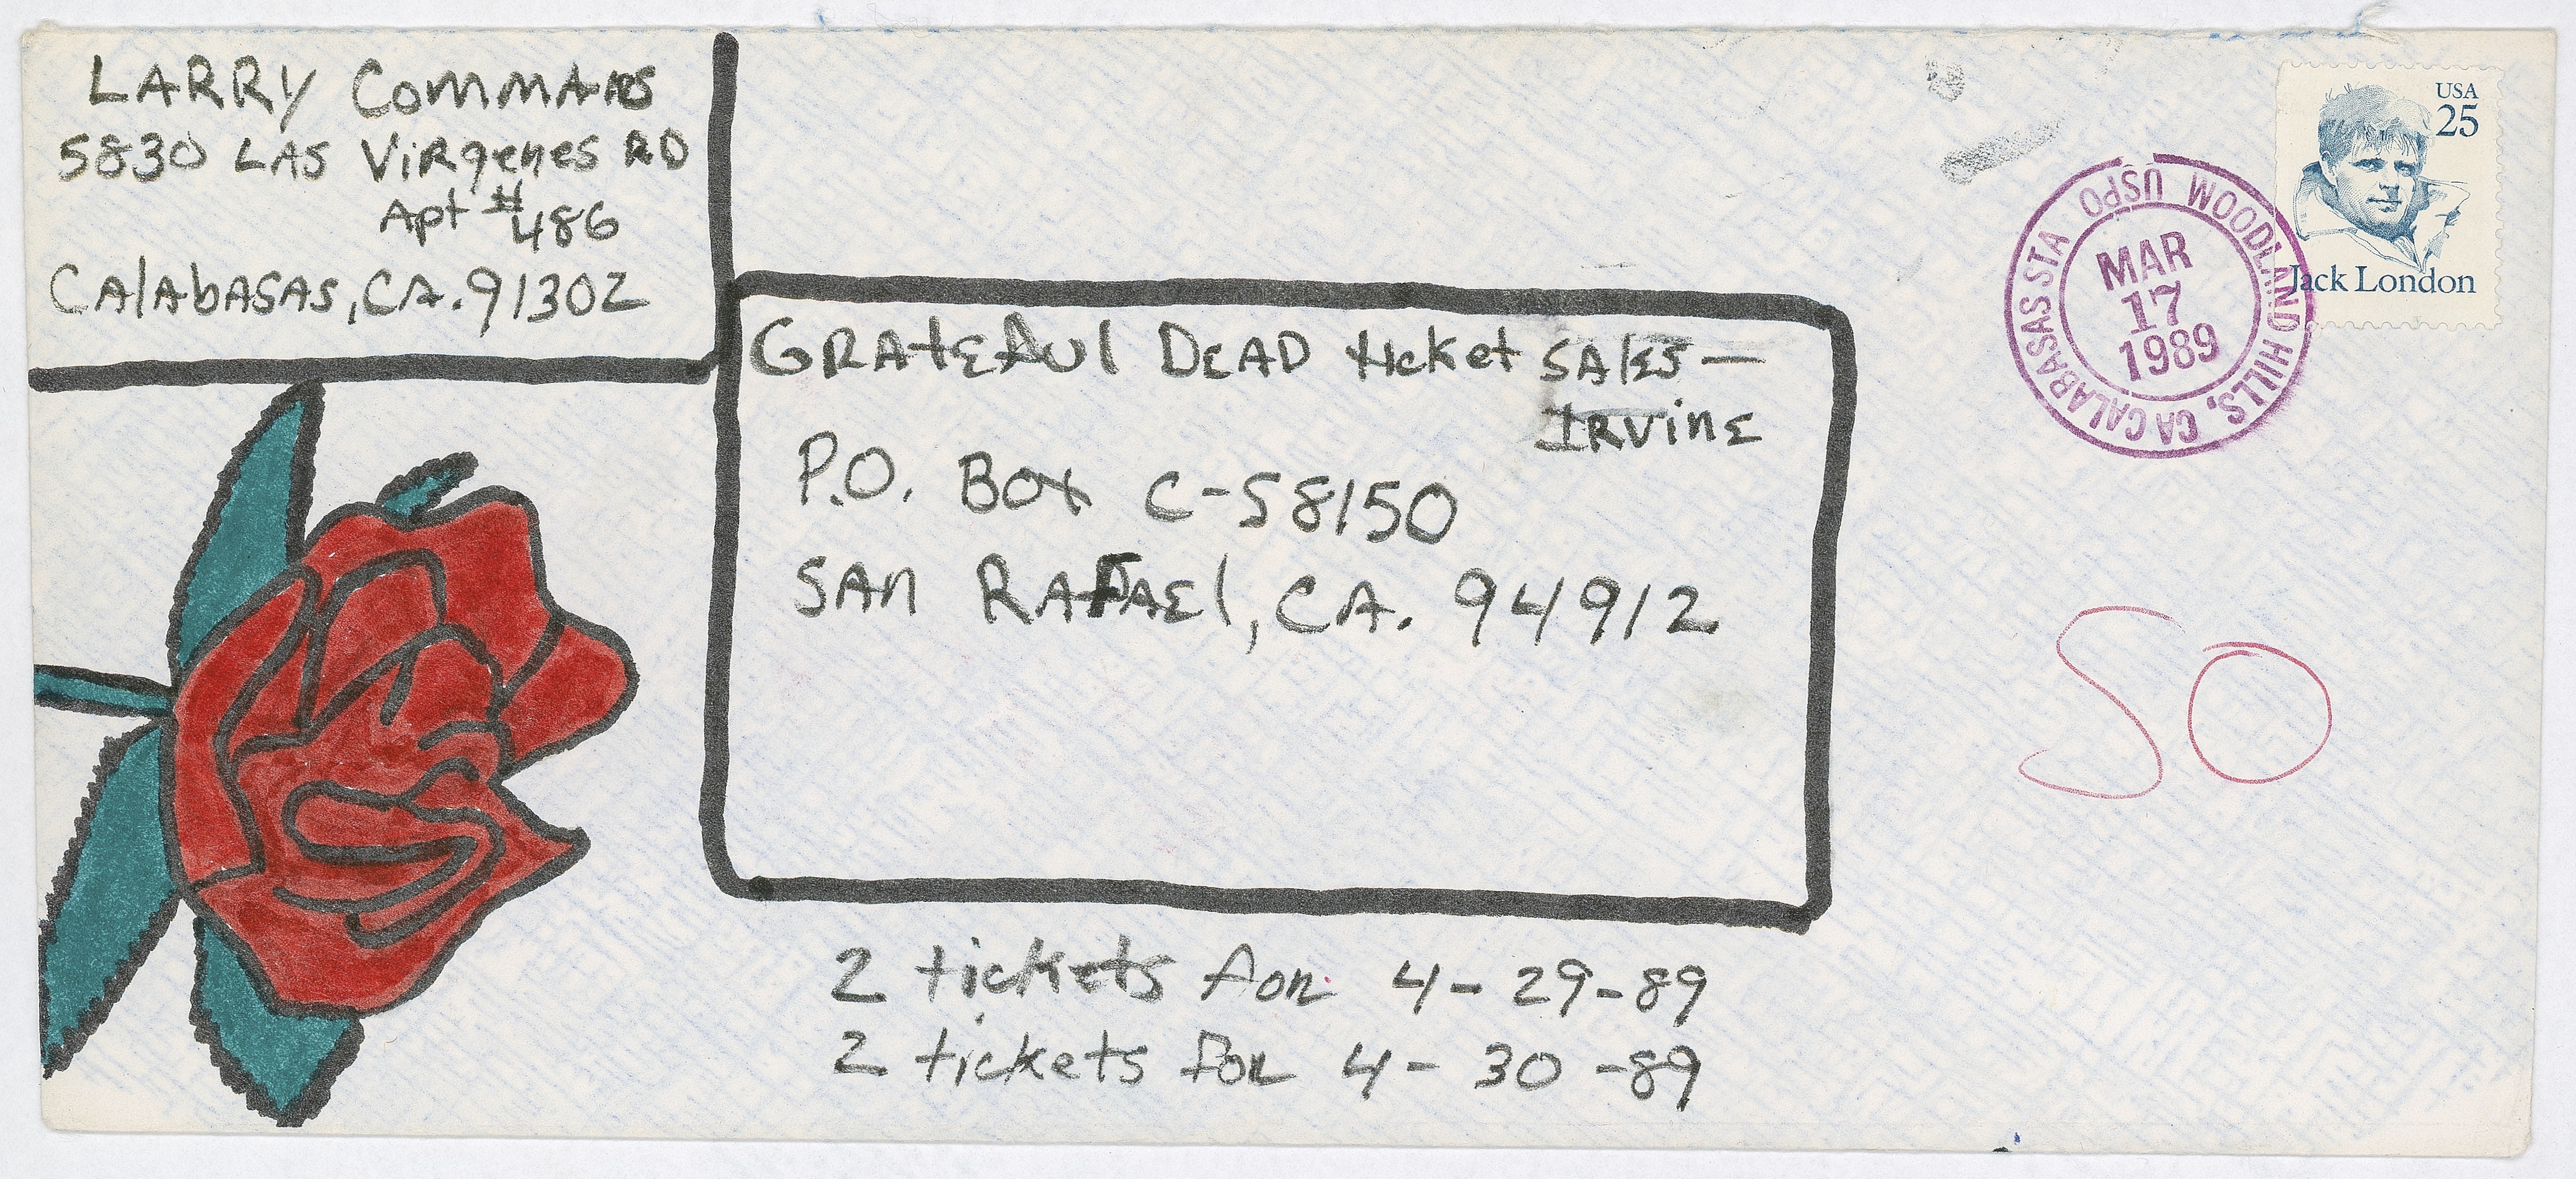 LARRY Commans
5830 LAS VIRgenes RD
Apt #486
CAlAbASAS, CA. 91302
USA
25
Jack London
CALABASAS STA USPO WOODLAND HILLS, CA
MAR
17
1989
GRAtEful DEAD ticket SAlES —
IRvinE
P.O. Box C-58150
SAn RAFAEl, CA. 94912
50
2 tickets for 4-29-89
2 tickets for 4-30-89